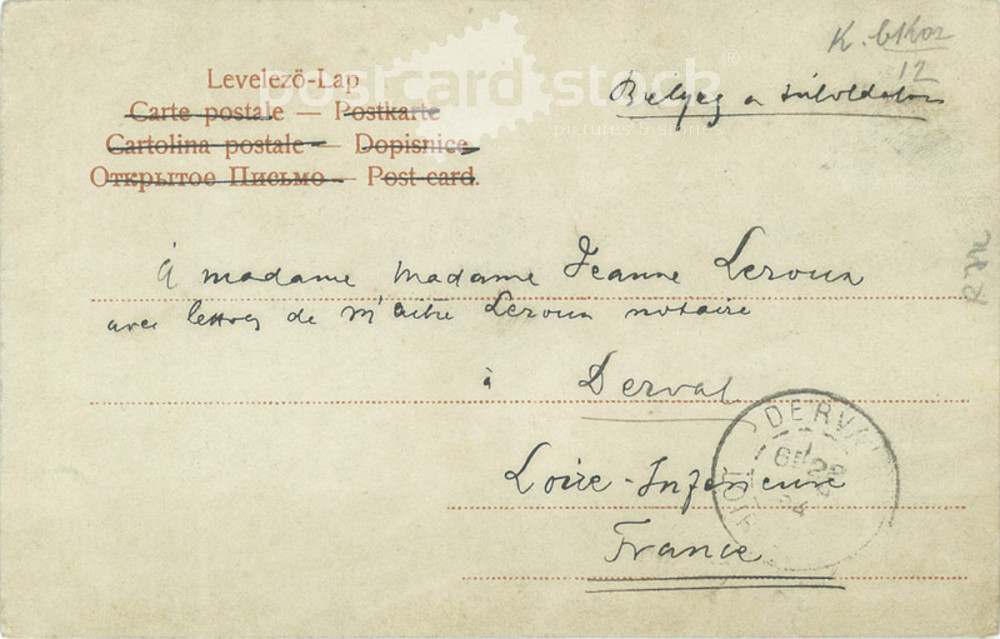 K.
12
Levelező-Lap
Bélyeg a túloldalon
Carte postale — Postkarte
Cartolina postale — Dopisnice
Открытое Письмо — Post card.
postcard stock®
pictures & stories
À madame Madame Jeanne Leroux
avec lettres de M'aitre Leroux notaire
à Derval
Loire-Inférieure
France
DERVAL